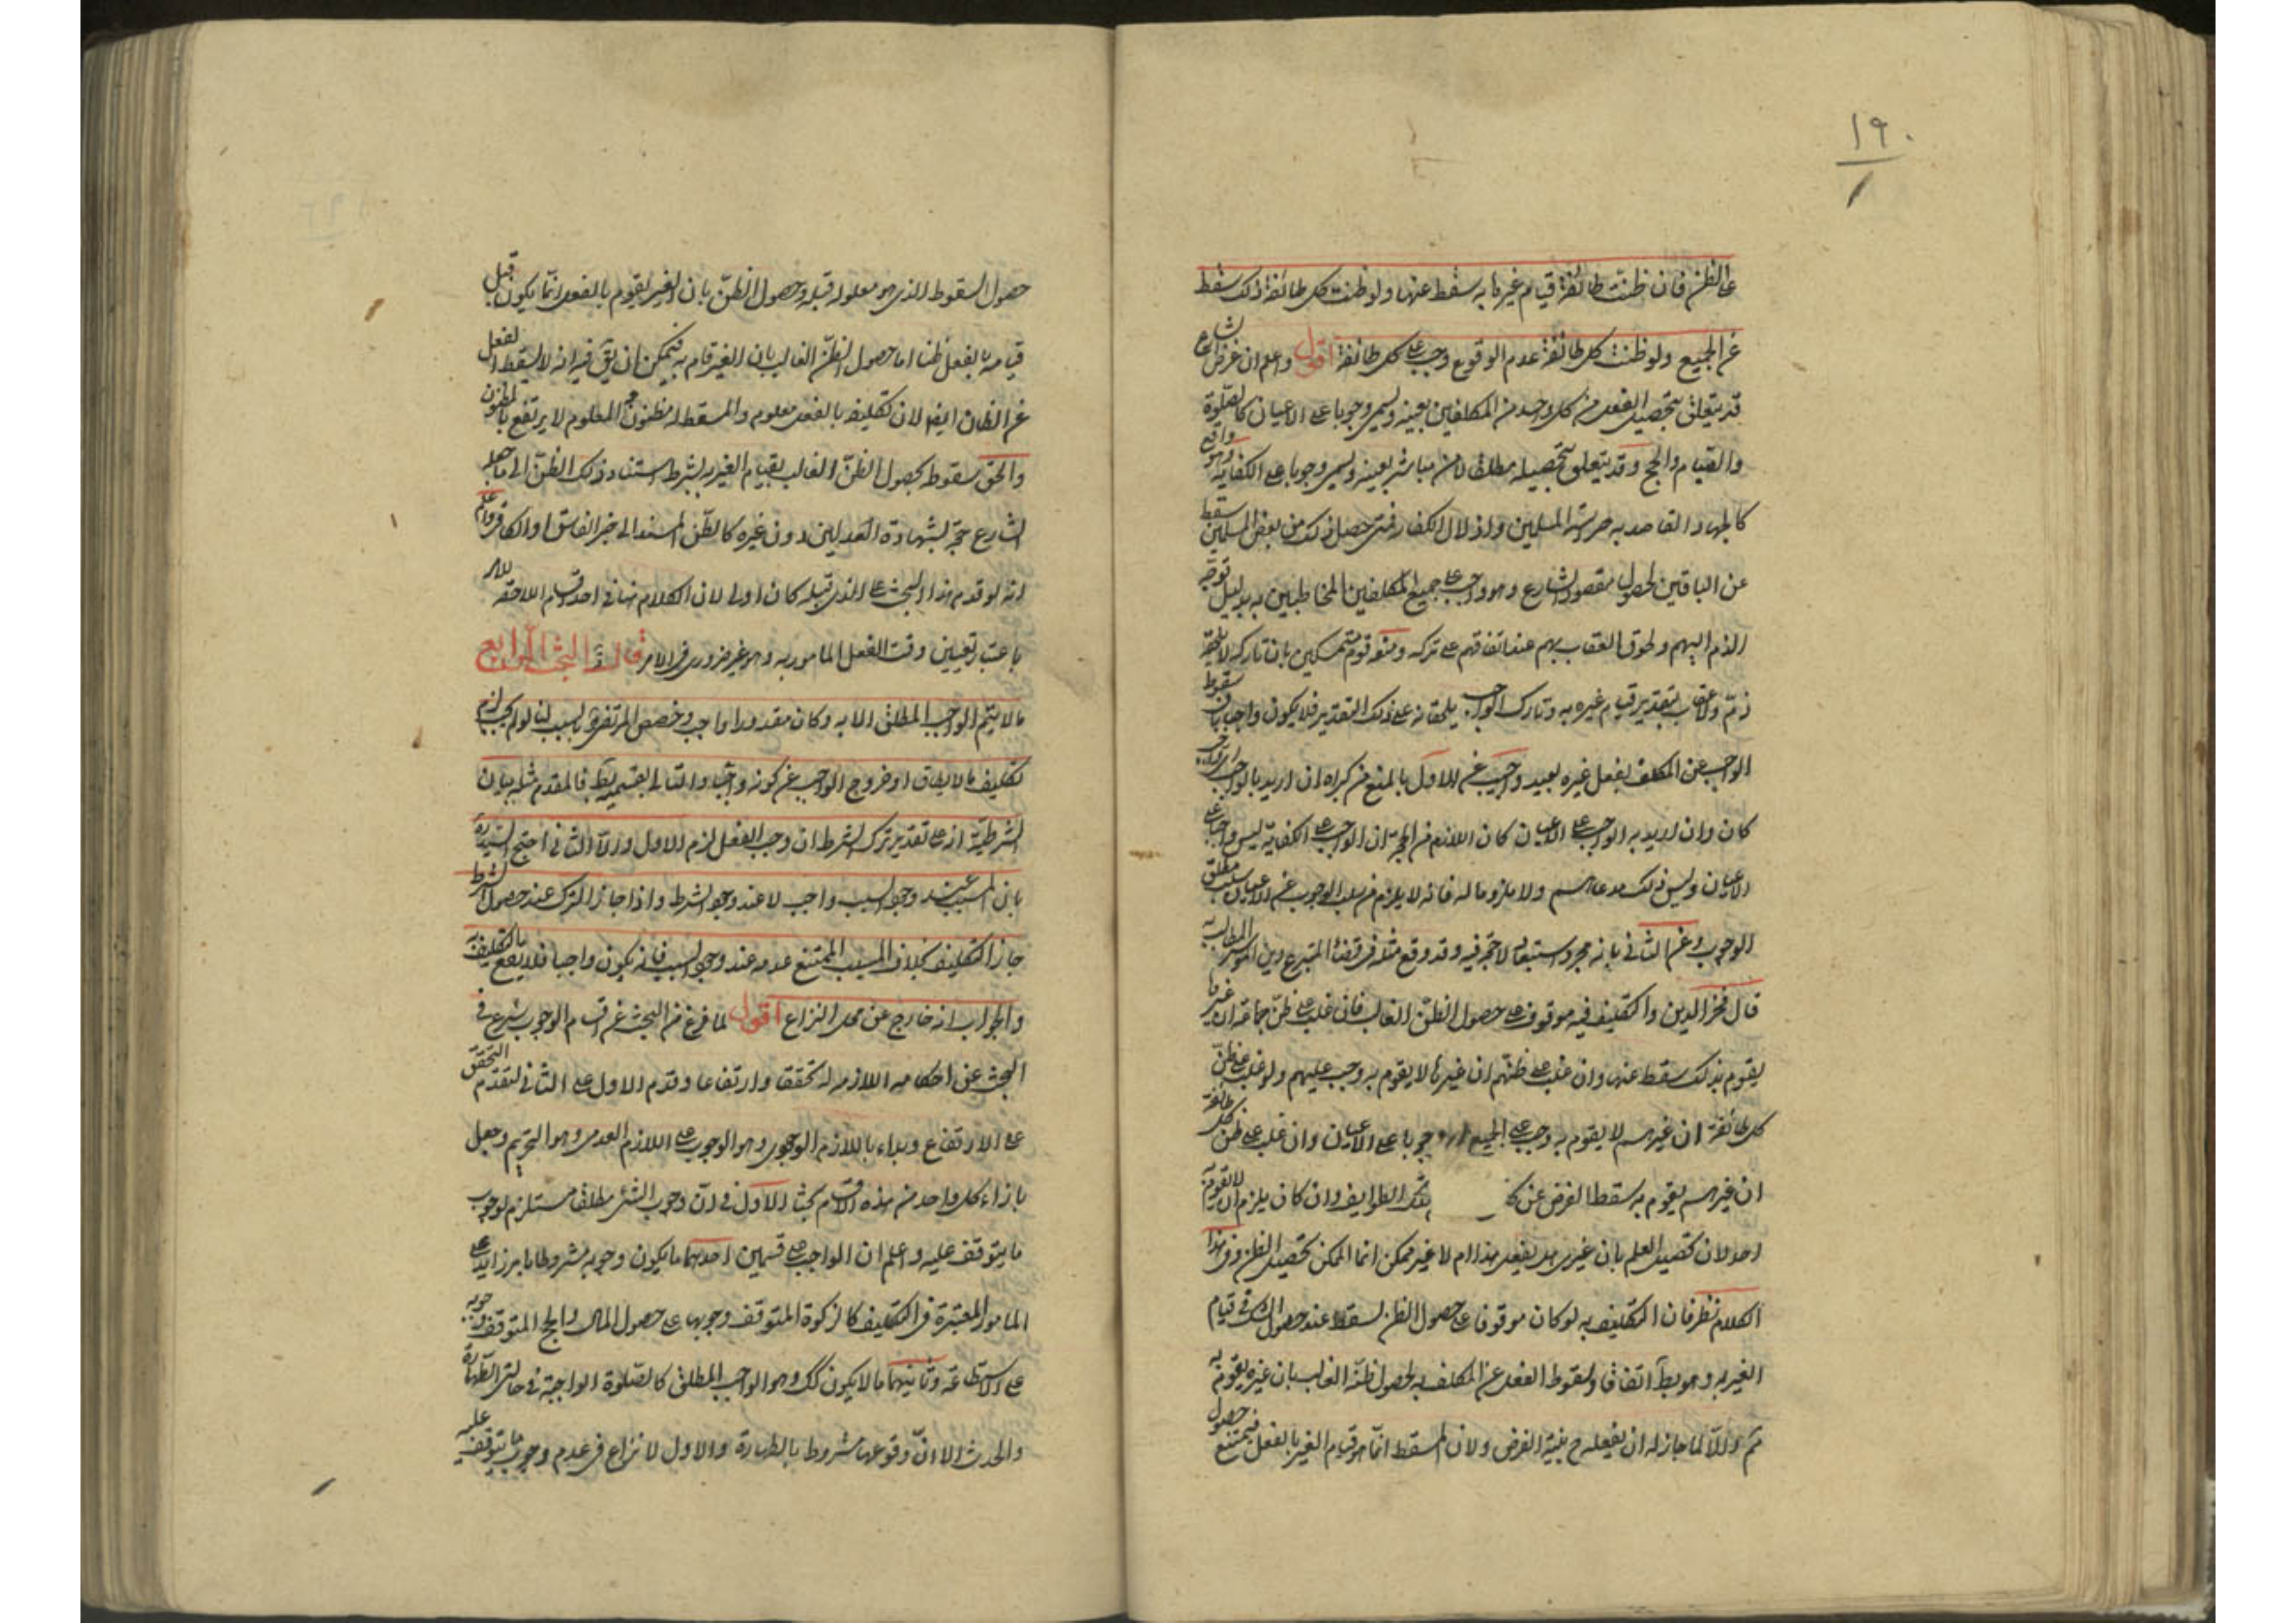 ١٩٠
على الظن فان ظنت طائفة قيام غيرها به سقط عنها ولو ظنت كل طائفة ذلك سقط
عن الجميع ولو ظنت كل طائفة عدم الوقوع وجب على كل طائفة اقول واعلم ان غرض الشارع
قد يتعلق بتحصيل الفعل من كل واحد من المكلفين بعينه ويسمى وجوبا على الاعيان كالصلوة
والصيام والحج وقد يتعلق بتحصيله مطلقا لا من مباشر بعينه ويسمى وجوبا على الكفاية وهو واقع
كالجهاد القاصد به حرسة المسلمين واذلال الكفار فمتى حصل ذلك من بعض المسلمين سقط
عن الباقين لحصول مقصود الشارع وهو واجب على جميع المكلفين المخاطبين به بدليل توجه
الذم اليهم ولحوق العقاب بهم عند اتفاقهم على تركه ومنعه قوم متمسكين بان تاركه لا يلحقه
ذم ولا عقاب بتقدير قيام غيره به وتارك الواجب يلحقانه على ذلك التقدير فلا يكون واجبا وبان سقوط
الواجب عن المكلف بفعل غيره بعيد واجيب عن الاول بالمنع من كبراه ان اريد بالواجب اى واجب
كان وان اريد به الواجب على الاعيان كان اللازم من الحجة ان الواجب على الكفاية ليس واجبا على
الاعيان وليس ذلك مدعاهم ولا ملزوما له فانه لا يلزم من سلب الوجوب عن الاعيان سلب مطلق
الوجوب وعن الثاني بانه مجرد استبعاد لا حجة فيه وقد وقع مثله في قضاء المتبرع دين الموسر المطالب به
قال فخر الدين والتكليف فيه موقوف على حصول الظن الغالب فان غلب على ظن جماعة ان غيرها
يقوم بذلك سقط عنها وان غلب على ظنهم ان غيرها لا يقوم به وجب عليهم ولو غلب على ظن
كل طائفة ان غيرهم لا يقوم به وجب على الجميع وجوبا على الاعيان وان غلب على ظن كل طائفة
ان غيرهم يقوم به سقط الفرض عن الطوايف وان كان يلزم ان لا يقوم به
احد لان تحصيل العلم بان غيرى هل يفعل هذا ام لا غير ممكن انما الممكن تحصيل الظن وفى هذا
الكلام نظر فان التكليف به لو كان موقوفا على حصول الظن لسقط عند حصول الشك في قيام
الغير به وهو بط اتفاقا ولسقوط الفعل عن المكلف به لحصول ظنه الغالب بان غيره يقوم به
ثم والا لما جاز له ان يفعله ح بنية الفرض ولان المسقط انما هو قيام الغير بالفعل فيمتنع حصول
حصول السقوط الذى هو معلوله قبله وحصول الظن بان الغير يقوم بالفعل انما يكون قبل
قيامه بالفعل ظنا اما حصول الظن الغالب بان الغير قام به فيمكن ان يق فيه انه لا يسقط الفعل
عن الظان ايضا لان تكليفه بالفعل معلوم والمسقط له مظنون المعلوم لا يرتفع بالمظنون
والحق سقوطه بحصول الظن الغالب بقيام الغير به بشرط استناد ذلك الظن الى ما جعله
الشارع حجة كشهادة العدلين دون غيره كالظن المستند الى خبر الفاسق او الكافر واعلم
انه لو قدم هذا البحث على الذى قبله كان اولى لان الكلام هنا فى احد اقسام اللاحقة للامر
باعتبار تعيين وقت الفعل المامور به وهو غير ضرورى فى الامر قال البحث الرابع
ما لا يتم الواجب المطلق الا به وكان مقدورا واجب وخصص المرتضى بالسبب لنا لو لم يجب لزم
تكليف ما لا يطاق او خروج الواجب عن كونه واجبا والتالى بقسميه بط فالمقدم مثله بيان
الشرطية انه على تقدير ترك الشرط ان وجب الفعل لزم الاول والا الثاني احتج السيد ره
بان المسبب عند وجود السبب واجب لا عند وجود الشرط واذا جاز الترك عند حصول الشرط
جاز التكليف بخلاف المسبب الممتنع عدمه عند وجود السبب فانه يكون واجبا فلا يقع التكليف به
والجواب انه خارج عن محل النزاع اقول لما فرغ من البحث عن اقسام الوجوب شرع فى
البحث عن احكامه اللازمة له تحققا وارتفاعا وقدم الاول على الثاني لتقدم التحقق
على الارتفاع وبداء باللازم الوجودى وهو الوجوب على اللازم العدمى وهو التحريم وجعل
بازاء كل واحد من هذه الاقسام بحثا الاول فى ان وجوب الشئ مطلقا مستلزم لوجوب
ما يتوقف عليه واعلم ان الواجب على قسمين احدهما ما يكون وجوبه مشروطا بامر زايد على
الامور المعتبرة فى التكليف كالزكوة المتوقف وجوبها على حصول المال والحج المتوقف وجوبه
على الاستطاعة وثانيهما ما لا يكون كك وهو الواجب المطلق كالصلوة الواجبة فى حالتى الطهارة
والحدث الا ان وقوعها مشروط بالطهارة والاول لا نزاع فى عدم وجوب ما يتوقف عليه